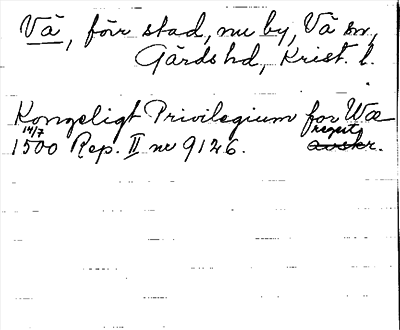 Vä, förr stad, nu by, Vä sn,
Gärds hd, Krist. l.
Kongeligt Privilegium for Wæ
14/7 regest
1500 Rep. II nr 9126. avskr.